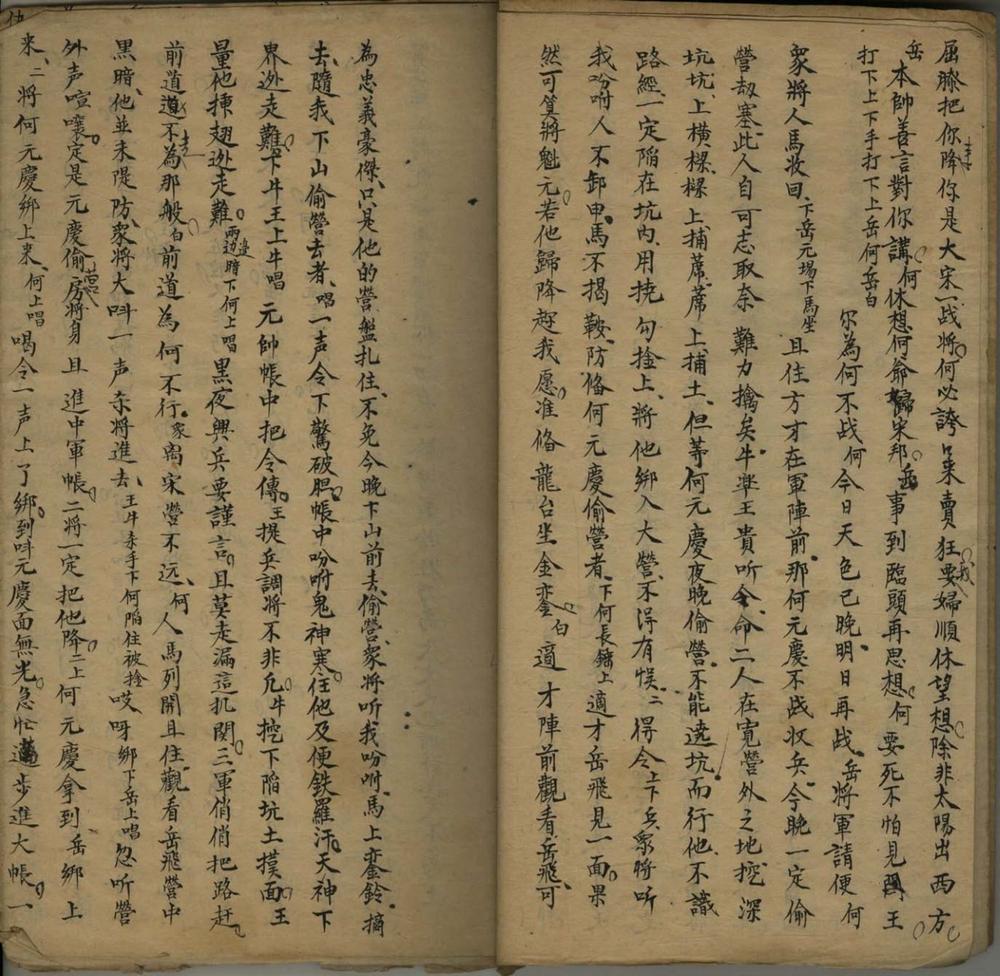 屈膝把你降你是大宋一战將何必誇口来賣狂要我婦順休望想除非太陽出西方
岳本帥善言對你講何休想何爺歸宋邦岳事到臨頭再思想何要死不怕見王
打下上下手打下上岳何岳白尔為何不战何今日天色已晚明日再战岳將軍請便何
衆將人馬收回下岳元埸下馬坐且住方才在軍陣前那何元慶不战收兵今晚一定偷
營劫寨此人自可志取奈難力擒矣牛臯王貴听令命二人在寬營外之地挖深
坑坑上横樑樑上捕蓆蓆上捕土但等何元慶夜晚偷營不能遶坑而行他不識
路經一定陷在坑內用挠勾捨上將他綁入大營不得有悮二得令下兵衆將听
我吩咐人不卸甲馬不揭鞍防俻何元慶偷營者下何長鎚上適才岳飛見一面果
然可算將魁元若他歸降趂我愿准俻龍台坐金鑾白適才陣前觀看岳飛可
為忠義豪傑只是他的營盤扎住不免今晚下山前去偷營衆將听我吩咐馬上鑾鈴摘
去隨我下山偷營去者唱一声令下驚破胆帳中吩咐鬼神寒任他及便鉄羅汗天神下
界迯走難下牛王上牛唱元帥帳中把令傳王提兵調將不非凡牛挖下陷坑土摸面王
量他揷翅迯走難兩邊暗下何上唱黑夜興兵要謹言且莫走漏這机関三軍俏俏把路赶
前道不走為那般白前道為何不行衆离宋營不远何人馬列開且住觀看岳飛營中
黑暗他並未隄防衆將大呌一声杀將進去王牛杀手下何陷住被捨哎呀綁下岳上唱忽听營
外声喧嚷定是元慶偷营房將身且進中軍帳二將一定把他降二上何元慶拿到岳綁上
来二將何元慶綁上来何上唱喝令一声上了綁到呌元慶面無光急忙進步進大帳一